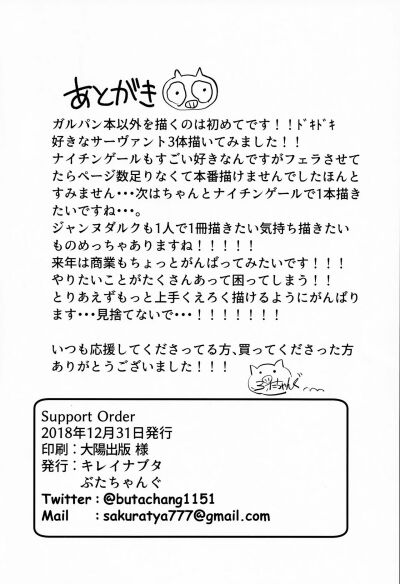 あとがき
ガルパン本以外を描くのは初めてです！！ﾄﾞｷﾄﾞｷ
好きなサーヴァント3体描いてみました！！
ナイチンゲールもすごい好きなんですがフェラさせて
たらページ数足りなくて本番描けませんでしたほんと
すみません・・・次はちゃんとナイチンゲールで1本描き
たいですね・・・。
ジャンヌダルクも1人で1冊描きたい気持ち描きたい
ものめっちゃありますね！！！！！
来年は商業もちょっとがんばってみたいです！！！
やりたいことがたくさんあって困ってしまう！！
とりあえずもっと上手くえろく描けるようにがんばり
ます・・・見捨てないで・・・！！！！！！！
いつも応援してくださってる方、買ってくださった方
ありがとうございました！！！
ぶたちゃんぐ
Support Order
2018年12月31日発行
印刷：大陽出版 様
発行：キレイナブタ
ぶたちゃんぐ
Twitter : @butachang1151
Mail : sakuratya777@gmail.com